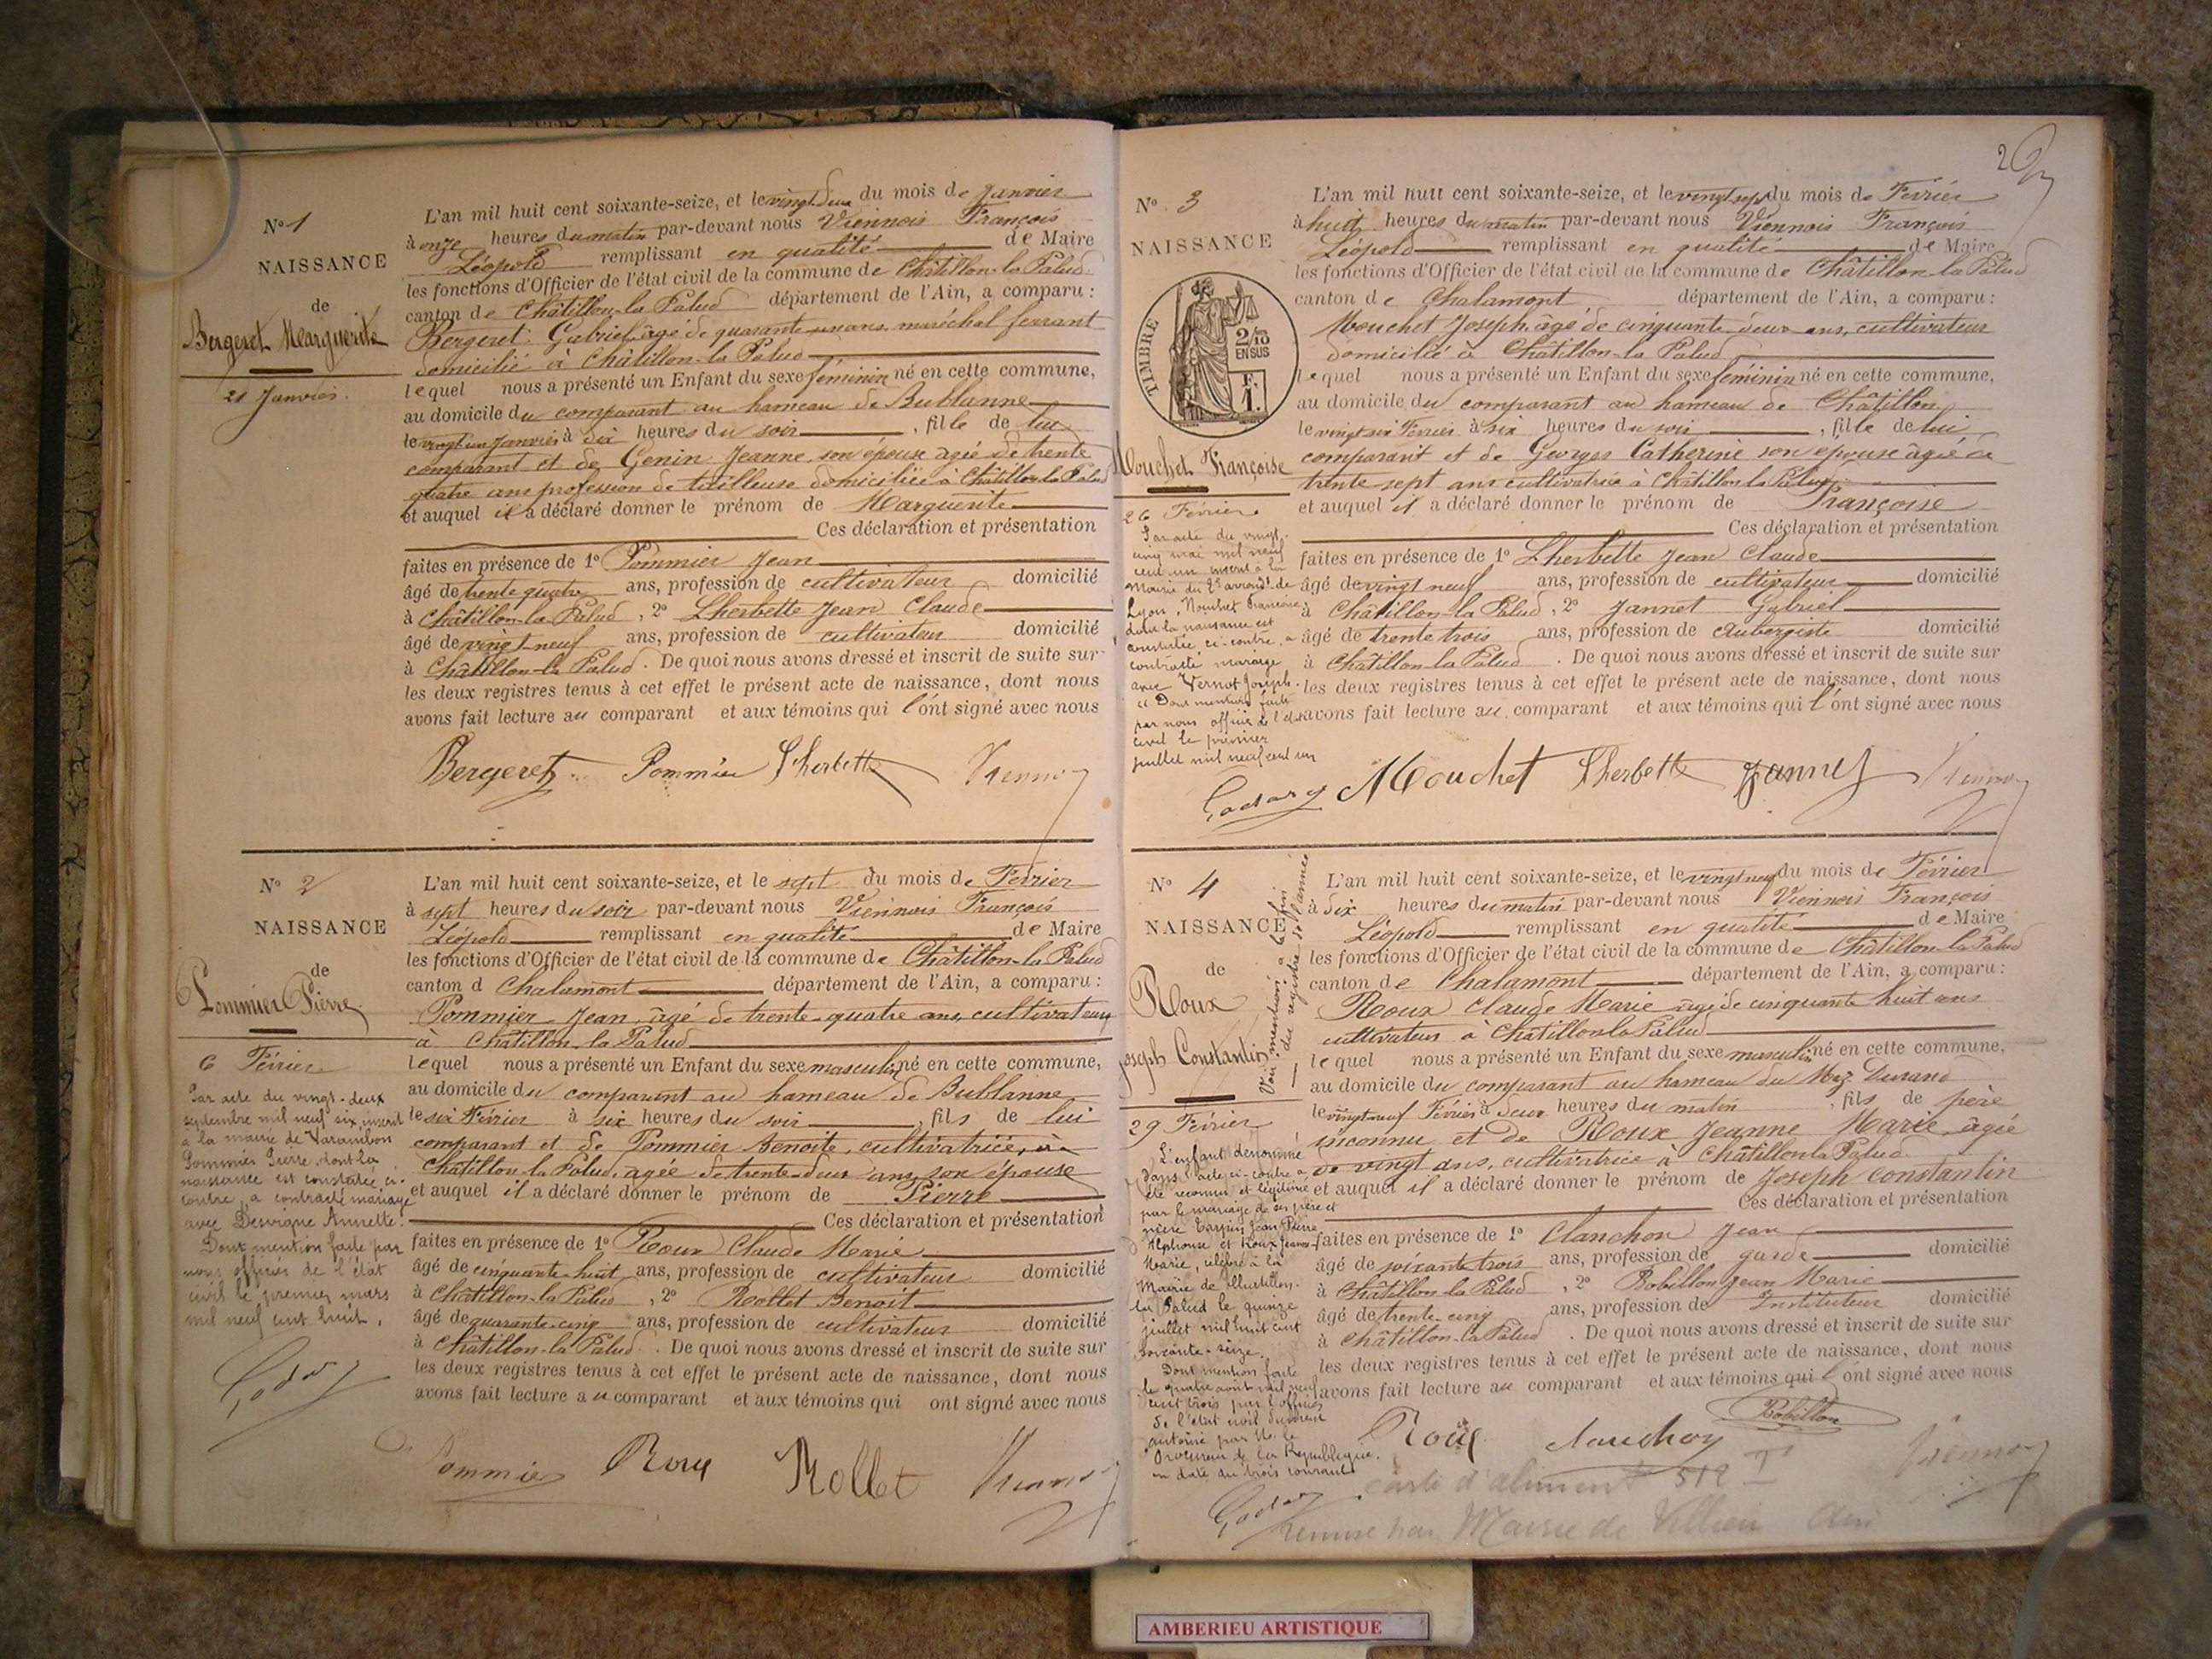 Nº 1
NAISSANCE
de
Bergeret Marguerite
21 Janvier.
L'an mil huit cent soixante-seize, et le vingt deux du mois de Janvier
à onze heures du matin par-devant nous Viennois François
Léopold remplissant en qualité de Maire
les fonctions d'Officier de l'état civil de la commune de Châtillon-la-Palud
canton de Châtillon-la-Palud département de l'Ain, a comparu :
Bergeret Gabriel âgé de quarante un ans, maréchal ferrant
domicilié à Châtillon-la-Palud
lequel nous a présenté un Enfant du sexe féminin né en cette commune,
au domicile du comparant au hameau de Bublanne
le vingt un Janvier à dix heures du soir, fille de lui
comparant et de Genin Jeanne, son épouse âgée de trente
quatre ans profession de tailleuse domiciliée à Châtillon-la-Palud
et auquel il a déclaré donner le prénom de Marguerite
Ces déclaration et présentation
faites en présence de 1º Pommier Jean
âgé de trente quatre ans, profession de cultivateur domicilié
à Châtillon-la-Palud, 2º Lherbette Jean Claude
âgé de vingt neuf ans, profession de cultivateur domicilié
à Châtillon-la-Palud. De quoi nous avons dressé et inscrit de suite sur
les deux registres tenus à cet effet le présent acte de naissance, dont nous
avons fait lecture au comparant et aux témoins qui l'ont signé avec nous
Bergeret Pommier Lherbette Viennois
Nº 2
NAISSANCE
de
Pommier Pierre.
6 Février
Par acte du vingt-deux
septembre mil neuf six, inscrit
à la mairie de Varambon
Pommier Pierre, dont la
naissance est constatée ci-
contre, a contracté mariage
avec Desvigne Annette.
Dont mention faite par
nous officier de l'état
civil le premier mars
mil neuf cent huit.
L'an mil huit cent soixante-seize, et le sept du mois de Février
à sept heures du soir par-devant nous Viennois François
Léopold remplissant en qualité de Maire
les fonctions d'Officier de l'état civil de la commune de Châtillon-la-Palud
canton d Chalamont département de l'Ain, a comparu :
Pommier Jean, âgé de trente-quatre ans, cultivateur
à Châtillon-la-Palud
lequel nous a présenté un Enfant du sexe masculin né en cette commune,
au domicile du comparant au hameau de Bublanne
le six Février à six heures du soir, fils de lui
comparant et de Pommier Benoite, cultivatrice, à
Châtillon-la-Palud, agée de trente-deux ans, son épouse
et auquel il a déclaré donner le prénom de Pierre
Ces déclaration et présentation
faites en présence de 1º Roux Claude Marie
âgé de cinquante-huit ans, profession de cultivateur domicilié
à Châtillon-la-Palud, 2º Rollet Benoit
âgé de quarante-cinq ans, profession de cultivateur domicilié
à Châtillon-la-Palud. De quoi nous avons dressé et inscrit de suite sur
les deux registres tenus à cet effet le présent acte de naissance, dont nous
avons fait lecture au comparant et aux témoins qui ont signé avec nous
Pommier Roux Rollet Viennois
2
Nº 3
NAISSANCE
TIMBRE
2/10
EN SUS
F.
1.
Mouchet Françoise
26 Février
Par acte du vingt-
cinq mai mil neuf
cent un inscrit à la
Mairie du 2e arrondt de
Lyon, Mouchet Françoise
dont la naissance est
constatée ci-contre, a
contracté mariage
avec Vernot Joseph.
Dont mention faite
par nous officier de l'état
civil le premier
juillet mil neuf cent un
L'an mil huit cent soixante-seize, et le vingt sept du mois de Février
à huit heures du matin par-devant nous Viennois François
Léopold remplissant en qualité de Maire
les fonctions d'Officier de l'état civil de la commune de Châtillon-la-Palud
canton de Chalamont département de l'Ain, a comparu :
Mouchet Joseph, âgé de cinquante-deux ans, cultivateur
domicilié à Châtillon-la-Palud
lequel nous a présenté un Enfant du sexe féminin né en cette commune,
au domicile du comparant au hameau de Châtillon
le vingt six Février à six heures du soir, fille de lui
comparant et de Georges Catherine son épouse âgée de
trente sept ans cultivatrice à Châtillon la Palud
et auquel il a déclaré donner le prénom de Françoise
Ces déclaration et présentation
faites en présence de 1º Lherbette Jean Claude
âgé de vingt neuf ans, profession de cultivateur domicilié
à Châtillon-la-Palud, 2º Jannet Gabriel
âgé de trente trois ans, profession de Aubergiste domicilié
à Châtillon-la-Palud. De quoi nous avons dressé et inscrit de suite sur
les deux registres tenus à cet effet le présent acte de naissance, dont nous
avons fait lecture au comparant et aux témoins qui l'ont signé avec nous
Mouchet Lherbette Jannet Viennois
Nº 4
NAISSANCE
de
Roux
Joseph Constantin
Voir mention à la fin
du registre de l'année
29 Février
L'enfant dénommé
dans l'acte ci-contre a
été reconnu et légitimé
par le mariage de ses père et
mère Tarpin Jean Pierre
Alphonse et Roux Jeanne-
Marie, célébré à la
Mairie de Châtillon-
la Palud le quinze
juillet mil huit cent
soixante-seize.
Dont mention faite
le quatre août mil neuf
cent trois par l'officier
de l'état civil dument
autorisé par M. le
Procureur de la République.
en date du trois courant
L'an mil huit cent soixante-seize, et le vingt neuf du mois de Février
à dix heures du matin par-devant nous Viennois François
Léopold remplissant en qualité de Maire
les fonctions d'Officier de l'état civil de la commune de Châtillon-la-Palud
canton de Chalamont département de l'Ain, a comparu :
Roux Claude Marie âgé de cinquante huit ans
cultivateur à Châtillon la Palud
lequel nous a présenté un Enfant du sexe masculin né en cette commune,
au domicile du comparant au hameau du Mas Durand
le vingt-neuf Février à deux heures du matin, fils de père
inconnu et de Roux Jeanne Marie, âgée
de vingt ans, cultivatrice à Châtillon la Palud
et auquel il a déclaré donner le prénom de Joseph Constantin
Ces déclaration et présentation
faites en présence de 1º Clanchon Jean
âgé de soixante trois ans, profession de garde domicilié
à Châtillon-la-Palud, 2º Bobillon Jean Marie
âgé de trente-cinq ans, profession de Instituteur domicilié
à Châtillon-la-Palud. De quoi nous avons dressé et inscrit de suite sur
les deux registres tenus à cet effet le présent acte de naissance, dont nous
avons fait lecture au comparant et aux témoins qui l'ont signé avec nous
Bobillon
Roux Viennois
carte d'aliment 512
remise par Mairie de Villieu Ain
AMBERIEU ARTISTIQUE